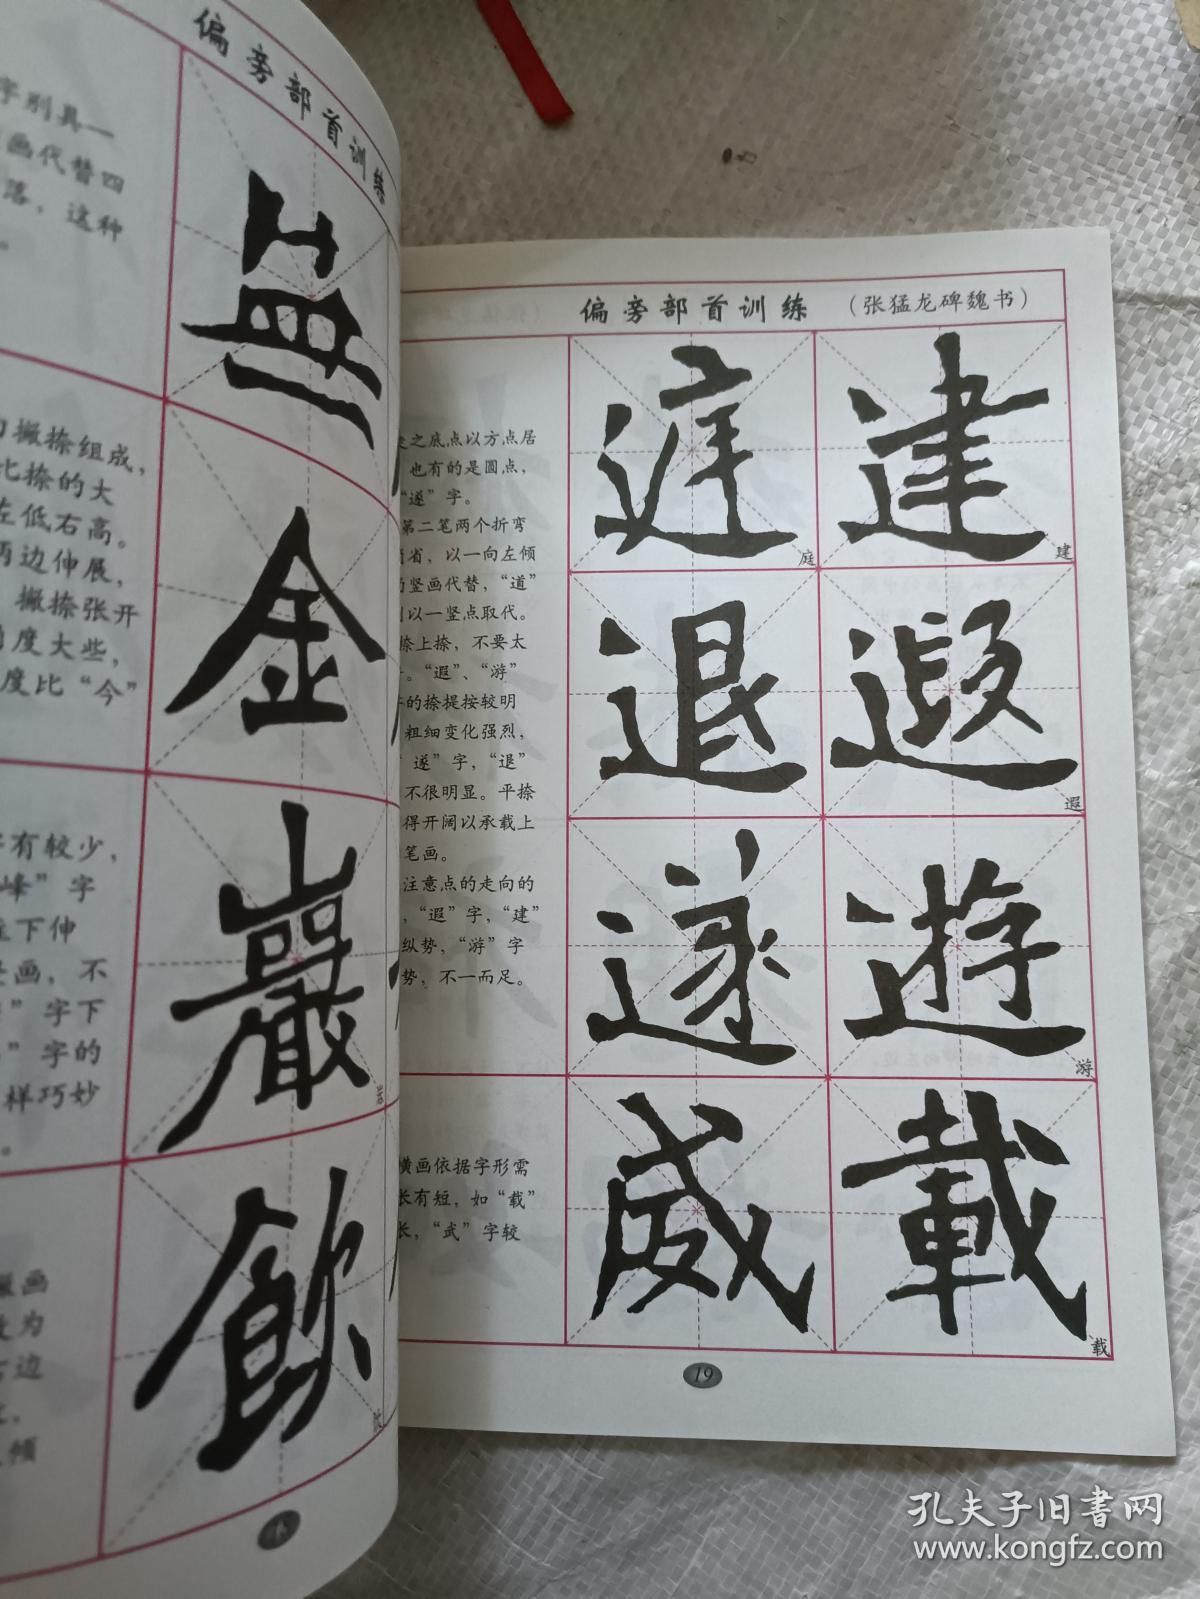 偏旁部首训练
字别具一
画代替四
落，这种
。
撇捺组成，
比捺的大
左低右高。
两边伸展，
撇捺张开
角度大些，
度比“今”
有较少，
峰”字
往下伸
画，不
”字下
”字的
样巧妙
。
画
改为
右边
倾
益
金
巖
岩
飲
偏旁部首训练
（张猛龙碑魏书）
走之底点以方点居
也有的是圆点，
“遂”字。
第二笔两个折弯
省，以一向左倾
竖画代替，“道”
以一竖点取代。
捺上捺，不要太
。“遐”、“游”
的捺提按较明
粗细变化强烈，
“遂”字，“退”
不很明显。平捺
得开阔以承载上
笔画。
注意点的走向的
，“遐”字，“建”
纵势，“游”字
势，不一而足。
横画依据字形需
长有短，如“载”
长，“武”字较
庭
庭
建
建
退
遐
遐
遂
遊
游
威
載
载
19
孔夫子旧书网
www.kongfz.com